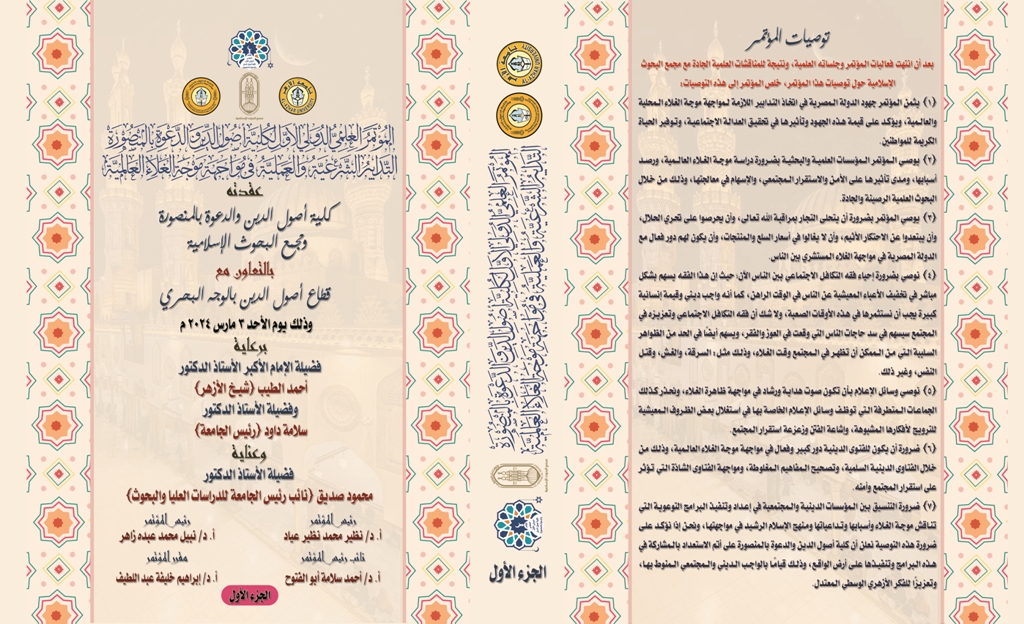 المؤتمر العلمي الدولي الأول لكلية أصول الدين والدعوة بالمنصورة
التدابير الشرعية والعملية في مواجهة موجة الغلاء العالمية
عقدته
كلية أصول الدين والدعوة بالمنصورة
ومجمع البحوث الإسلامية
بالتعاون مع
قطاع أصول الدين بالوجه البحري
وذلك يوم الأحد ٣ مارس ٢٠٢٤ م
برعاية
فضيلة الإمام الأكبر الأستاذ الدكتور
أحمد الطيب (شيخ الأزهر)
وفضيلة الأستاذ الدكتور
سلامة داود (رئيس الجامعة)
وعناية
فضيلة الأستاذ الدكتور
محمود صديق (نائب رئيس الجامعة للدراسات العليا والبحوث)
رئيس المؤتمر
رئيس المؤتمر
أ. د/ نظير محمد نظير عياد
أ. د/ نبيل محمد عبده زاهر
نائب رئيس المؤتمر
مقرر المؤتمر
أ. د/ أحمد سلامة أبو الفتوح
أ. د/ إبراهيم خليفة عبد اللطيف
الجزء الأول
المؤتمر العلمي الدولي الأول لكلية أصول الدين والدعوة بالمنصورة
التدابير الشرعية والعملية في مواجهة موجة الغلاء العالمية
الجزء الأول
توصيات المؤتمر
بعد أن انتهت فعاليات المؤتمر وجلساته العلمية، ونتيجة للمناقشات العلمية الجادة مع مجمع البحوث
الإسلامية حول توصيات هذا المؤتمر، خلص المؤتمر إلى هذه التوصيات:
(١) يثمن المؤتمر جهود الدولة المصرية في اتخاذ التدابير اللازمة لمواجهة موجة الغلاء المحلية
والعالمية، ويؤكد على قيمة هذه الجهود وتأثيرها في تحقيق العدالة الاجتماعية، وتوفير الحياة
الكريمة للمواطنين.
(٢) يوصي المؤتمر المؤسسات العلمية والبحثية بضرورة دراسة موجة الغلاء العالمية، ورصد
أسبابها، ومدى تأثيرها على الأمن والاستقرار المجتمعي، والإسهام في معالجتها، وذلك من خلال
البحوث العلمية الرصينة والجادة.
(٣) يوصي المؤتمر بضرورة أن يتحلى التجار بمراقبة الله تعالى، وأن يحرصوا على تحري الحلال،
وأن يبتعدوا عن الاحتكار الأثيم، وأن لا يغالوا في أسعار السلع والمنتجات، وأن يكون لهم دور فعال مع
الدولة المصرية في مواجهة الغلاء المستشري بين الناس.
(٤) نوصي بضرورة إحياء فقه التكافل الاجتماعي بين الناس الآن، حيث إن هذا الفقه يسهم بشكل
مباشر في تخفيف الأعباء المعيشية عن الناس في الوقت الراهن، كما أنه واجب ديني وقيمة إنسانية
كبيرة يجب أن نستثمرها في هذه الأوقات الصعبة، ولا شك أن فقه التكافل الاجتماعي وتعزيزه في
المجتمع سيسهم في سد حاجات الناس التى وقعت في العوز والفقر، ويسهم أيضًا في الحد من الظواهر
السلبية التى من الممكن أن تظهر في المجتمع وقت الغلاء، وذلك مثل، السرقة، والغش، وقتل
النفس، وغير ذلك.
(٥) نوصي وسائل الإعلام بأن تكون صوت هداية ورشاد في مواجهة ظاهرة الغلاء، ونحذر كذلك
الجماعات المتطرفة التى توظف وسائل الإعلام الخاصة بها في استغلال بعض الظروف المعيشية
للترويج لأفكارها المشبوهة، وإشاعة الفتن وزعزعة استقرار المجتمع.
(٦) ضرورة أن يكون للفتوى الدينية دور كبير وفعال في مواجهة موجة الغلاء العالمية، وذلك من
خلال الفتاوى الدينية السليمة، وتصحيح المفاهيم المغلوطة، ومواجهة الفتاوى الشاذة التي تؤثر
على استقرار المجتمع وأمنه.
(٧) ضرورة التنسيق بين المؤسسات الدينية والمجتمعية في إعداد وتنفيذ البرامج التوعوية التى
تناقش موجة الغلاء وأسبابها وتداعياتها ومنهج الإسلام الرشيد في مواجهتها، ونحن إذا نؤكد على
ضرورة هذه التوصية نعلن أن كلية أصول الدين والدعوة بالمنصورة على أتم الاستعداد بالمشاركة في
هذه البرامج وتنفيذها على أرض الواقع، وذلك قيامًا بالواجب الديني والمجتمعي المنوط بها،
وتعزيزًا للفكر الأزهري الوسطي المعتدل.